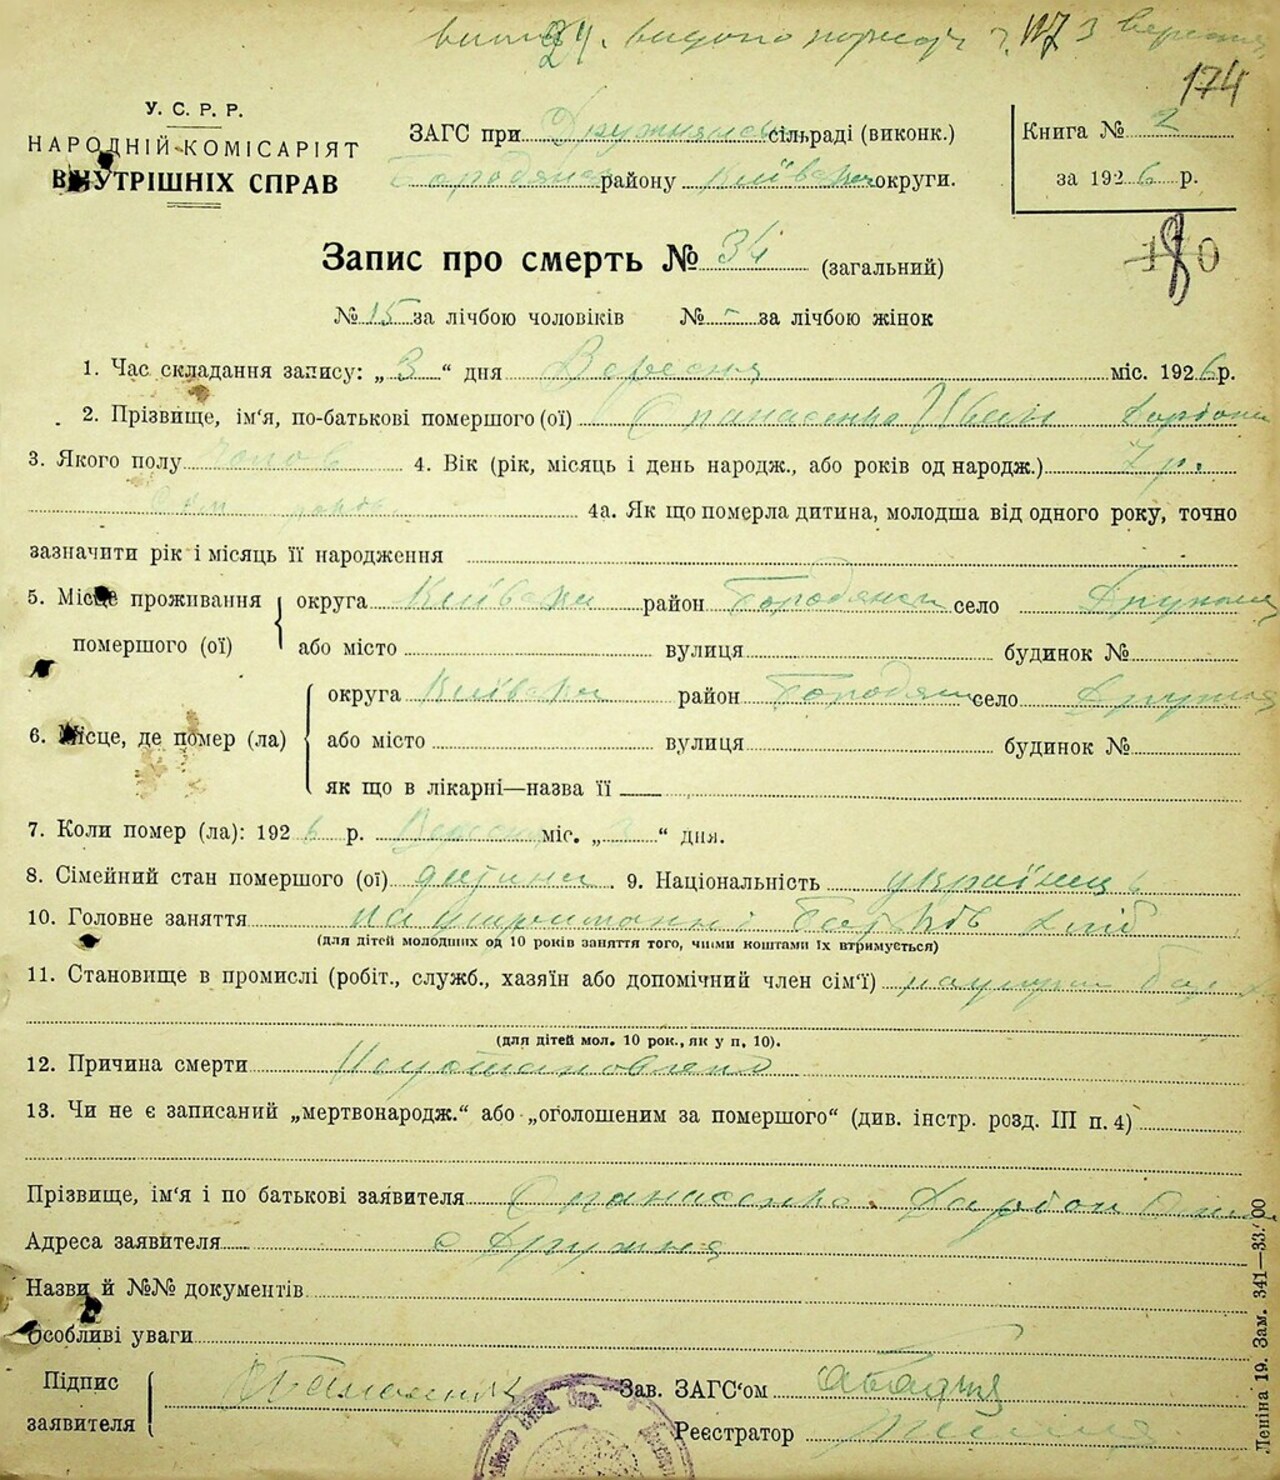 174
У. С. Р. Р.
НАРОДНІЙ КОМІСАРІЯТ
ВНУТРІШНІХ СПРАВ
ЗАГС при Дружнянс сільраді (виконк.)
Бородянс району Київськ округи.
Книга № 2
за 1926 р.
Запис про смерть № 34 (загальний)
№ 15 за лічбою чоловіків № - за лічбою жінок
1. Час складання запису: „ 3 “ дня Вересня міс. 1926 р.
2. Прізвище, ім'я, по-батькові помершого (ої) Опанасенко Іван
3. Якого полу Чолов 4. Вік (рік, місяць і день народж., або років од народж.) 7 р.
Сім років 4а. Як що померла дитина, молодша від одного року, точно
зазначити рік і місяць її народження
5. Місце проживання помершого (ої) округа Київськ район Бородянськ село Дружня
або місто вулиця будинок №
6. Місце, де помер (ла) округа Київськ район Бородян село Дружня
або місто вулиця будинок №
як що в лікарні—назва її
7. Коли помер (ла): 1926 р. Вересн міс. „ “ дня.
8. Сімейний стан помершого (ої) дитина . 9. Національність українець
10. Головне заняття на утриманні батьків хліб
(для дітей молодших од 10 років заняття того, чиїми коштами їх втримується)
11. Становище в промислі (робіт., служб., хазяїн або допомічний член сім'ї) на утрим бать
(для дітей мол. 10 рок., як у п. 10).
12. Причина смерти Неустановлено
13. Чи не є записаний „мертвонародж.“ або „оголошеним за помершого“ (див. інстр. розд. III п. 4)
Прізвище, ім'я і по батькові заявителя Опанасенко
Адреса заявителя с Дружня
Назви й №№ документів
Особливі уваги
Підпис заявителя
Зав. ЗАГС'ом
Реєстратор
Леніна 19. Зам. 341—33.